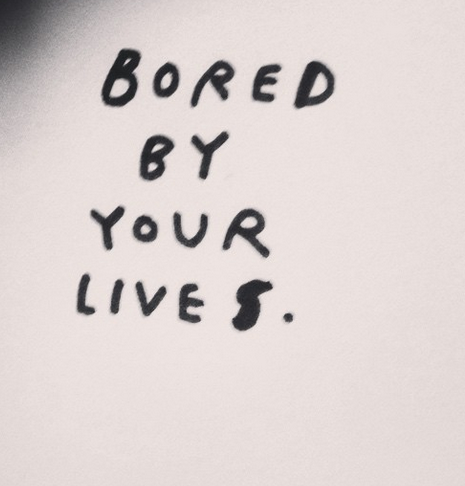 BORED
BY
YOUR
LIVES.